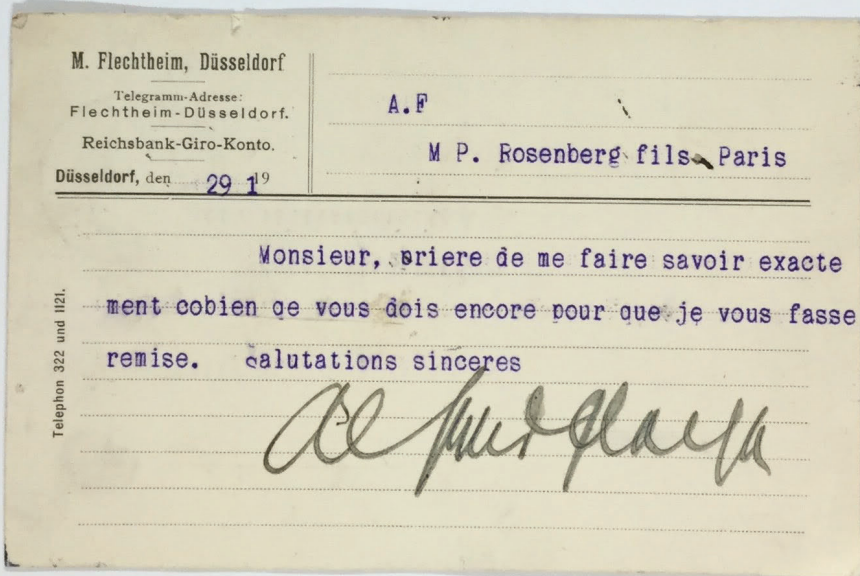 M. Flechtheim, Düsseldorf
Telegramm-Adresse:
Flechtheim-Düsseldorf.
Reichsbank-Giro-Konto.
Düsseldorf, den 29 1 19
A.F
M P. Rosenberg fils Paris
Monsieur, priere de me faire savoir exacte
ment cobien qe vous dois encore pour que je vous fasse
remise. salutations sinceres
Telephon 322 und 1121.